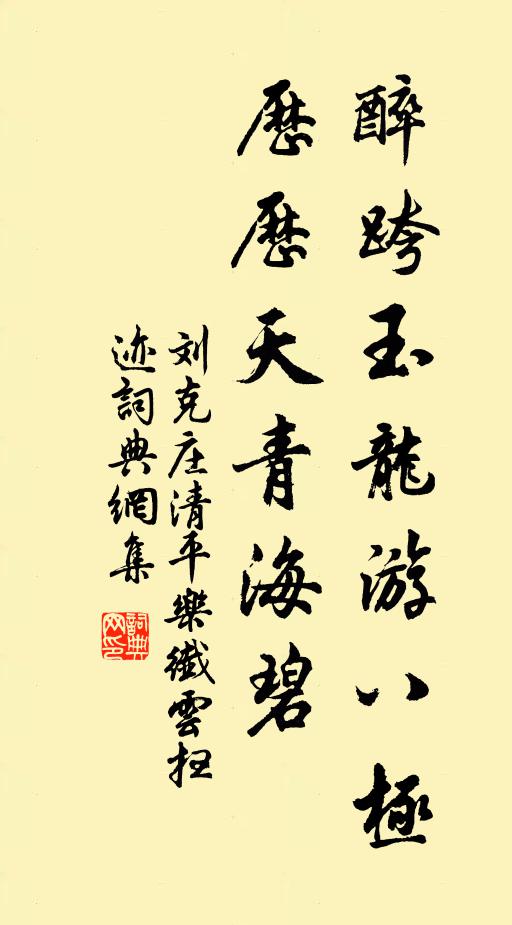 醉跨玉龍游八極
歷歷天青海碧
刘克庄清平樂纖雲扫
迹詞典網集
詞典网印